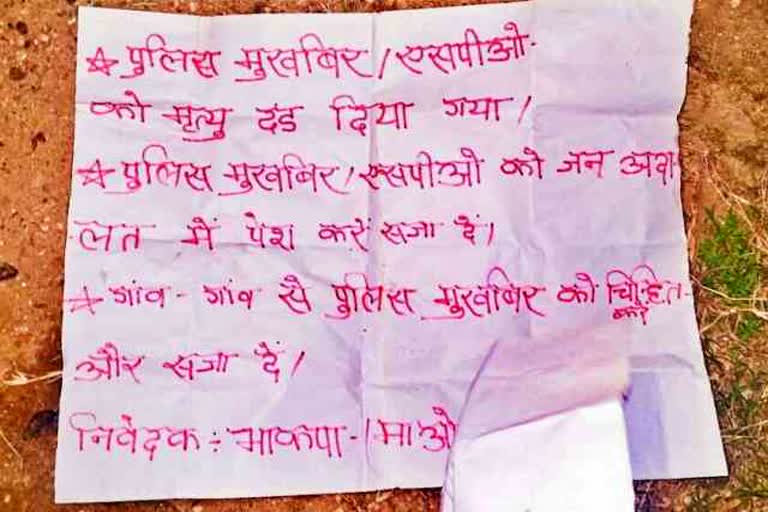 ☆ पुलिस मुखबिर / एसपीओ
को मृत्यु दंड दिया गया /
☆ पुलिस मुखबिर / एसपीओ को जन अदा-
लत में पेश करें सजा दें।
☆ गांव - गांव से पुलिस मुखबिर को चिह्नित
करें
और सजा दें /
निवेदक : भाकपा - (माओ